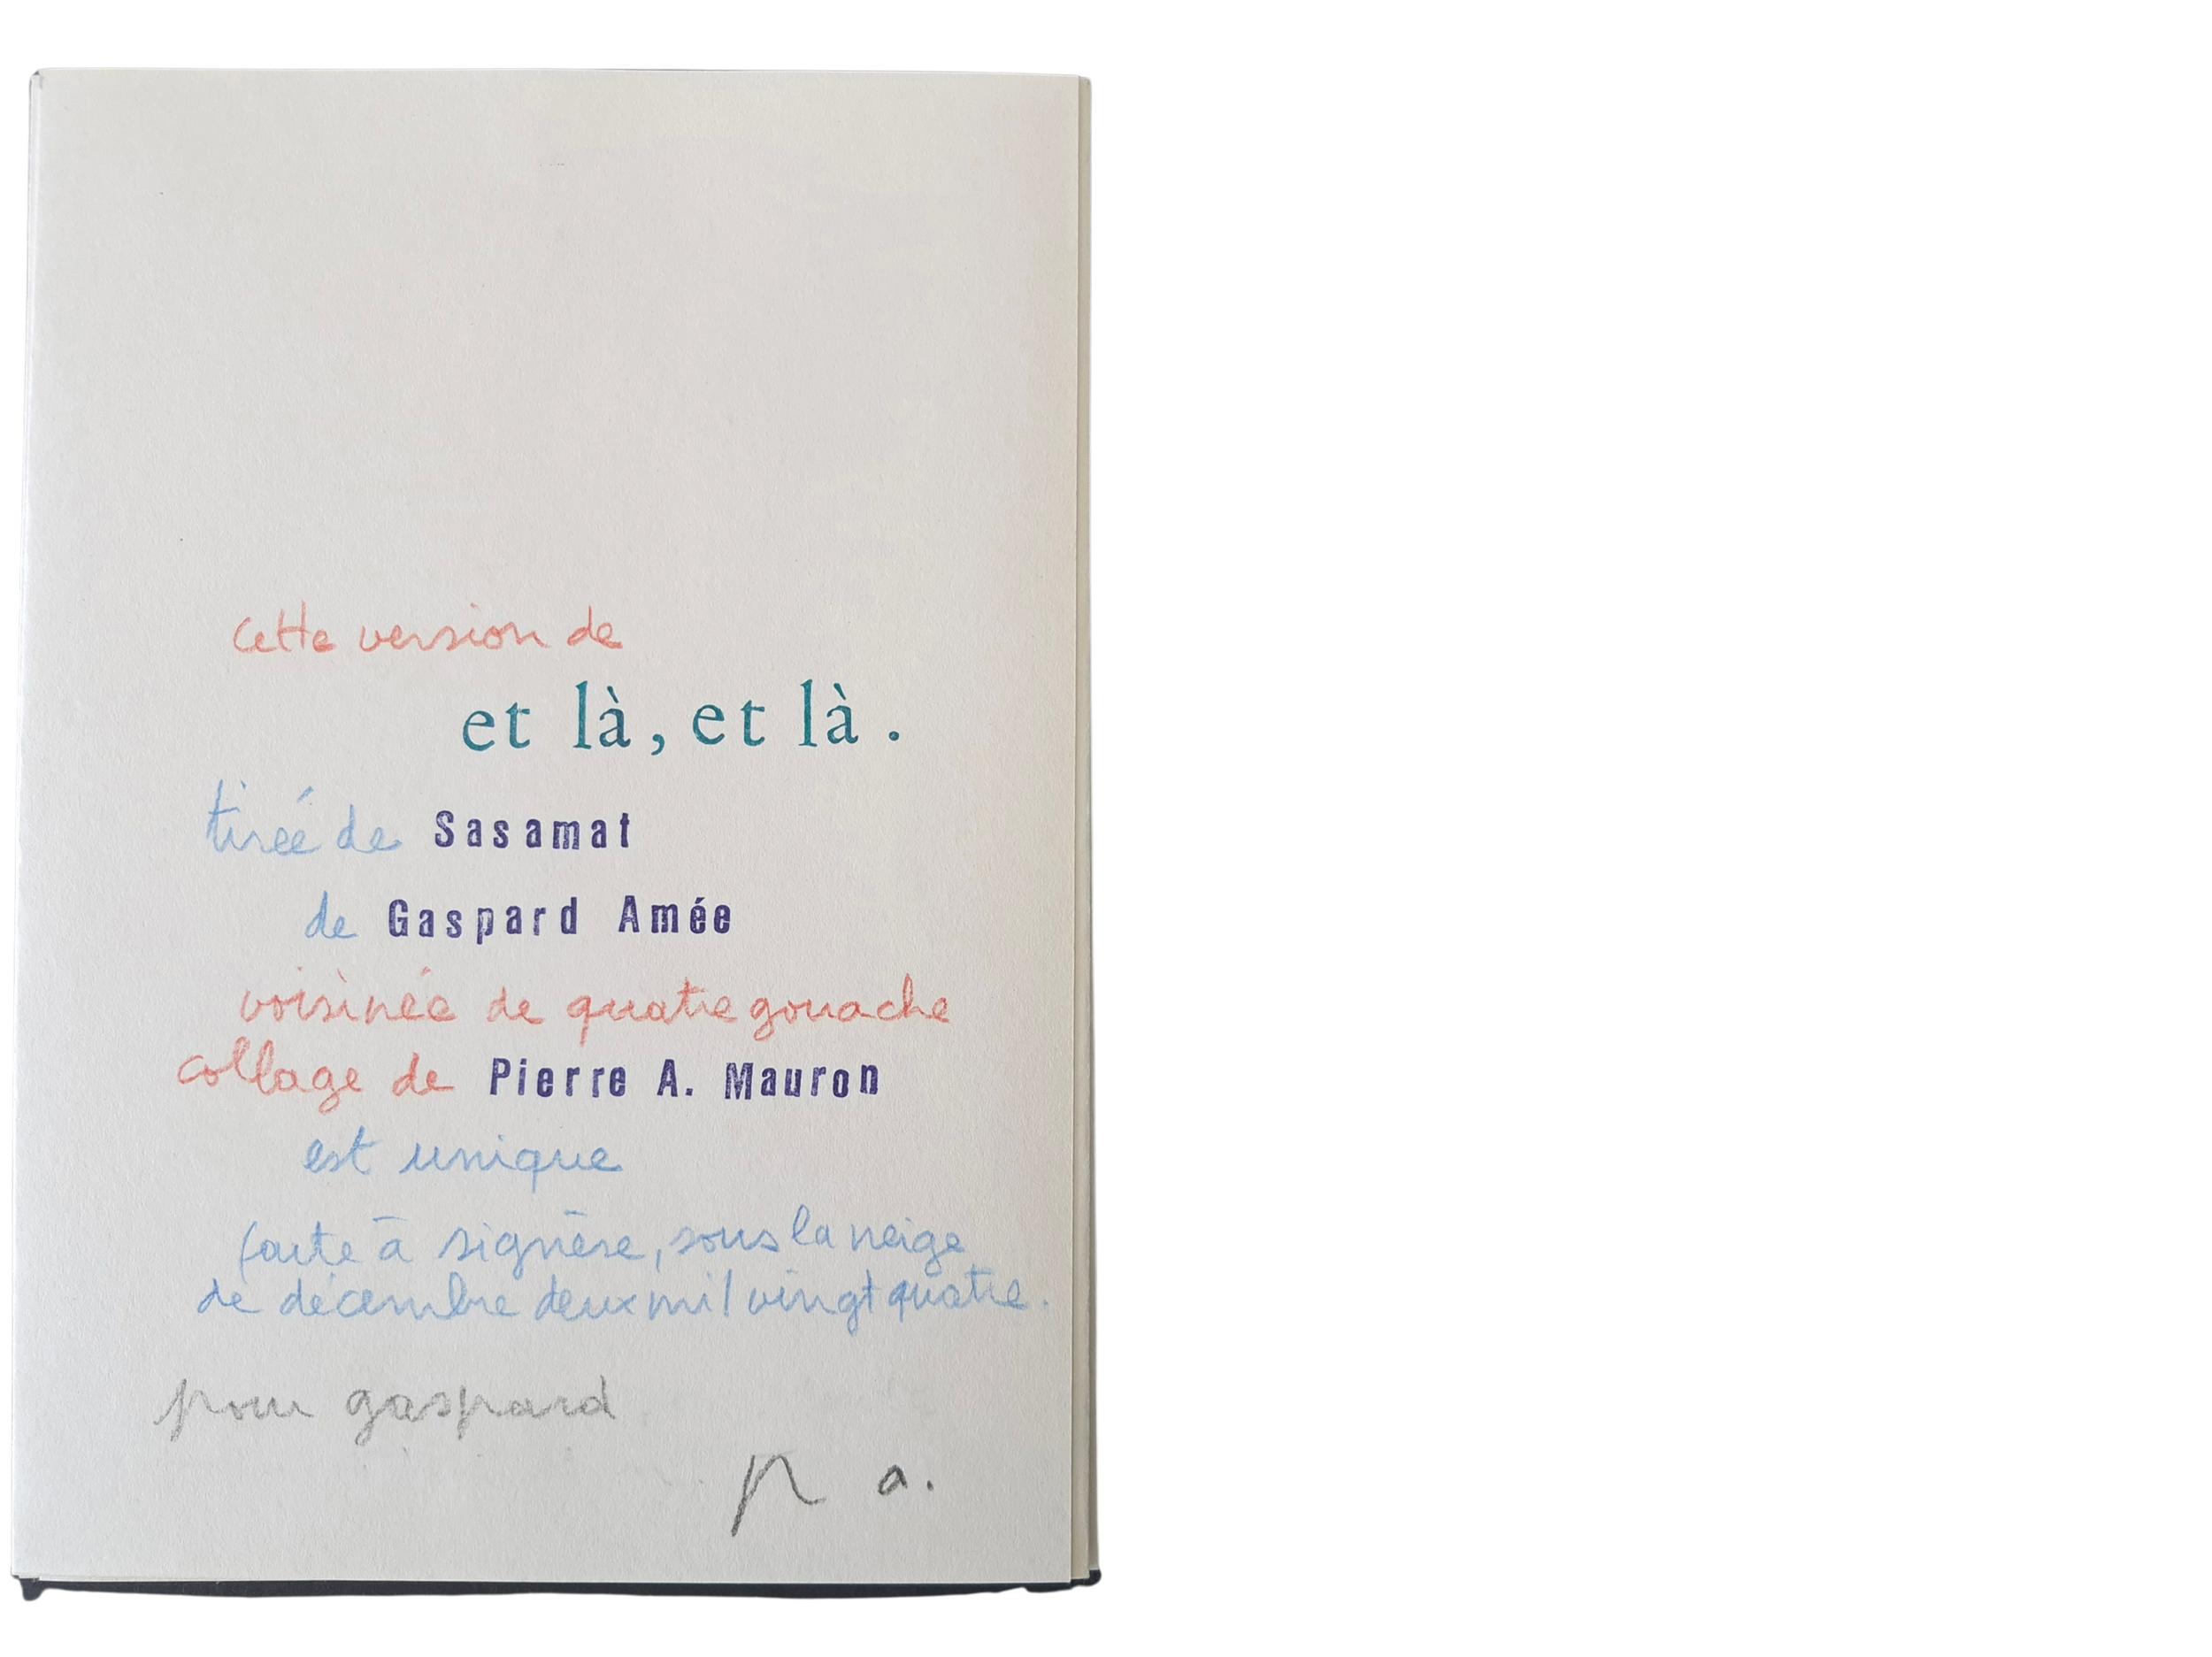 cette version de
et là, et là.
tirée de Sasamat
de Gaspard Amée
voisinée de quatre gouache
collage de Pierre A. Mauron
est unique
faite à signèse, sous la neige
de décembre deux mil vingt quatre.
pour gaspard
p a.